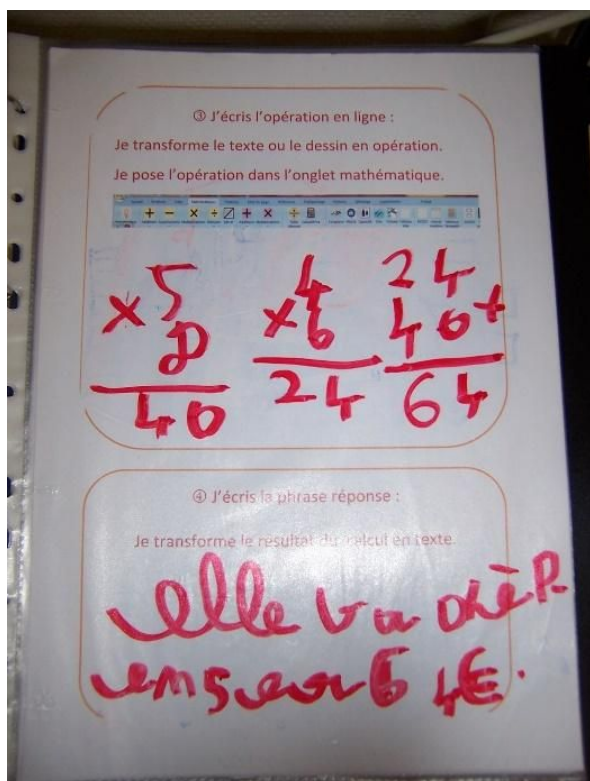 ③ J'écris l'opération en ligne :
Je transforme le texte ou le dessin en opération.
Je pose l'opération dans l'onglet mathématique.
×5 ×4 24
8 6 40+
40 24 64
④ J'écris la phrase réponse :
Je transforme le résultat du calcul en texte.
elle va
64€.